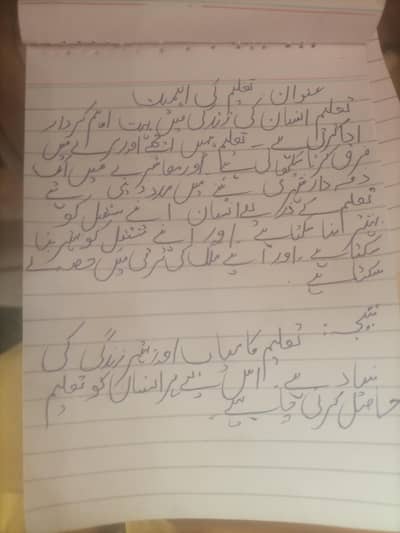 عنوان: تعلیم کی اہمیت
تعلیم انسان کی زندگی میں بہت اہم کردار
ادا کرتی ہے۔ تعلیم ہمیں اچھے اور برے میں
فرق کرنا سکھاتی ہے اور معاشرے میں ایک
ذمے دار شہری بننے میں مدد دیتی ہے
تعلیم کے ذریعے انسان اپنے مستقبل کو
بہتر بنا سکتا ہے۔ اور اپنے مستقبل کو بہتر بنا
سکتا ہے۔ اور اپنے ملک کی ترقی میں حصہ لے
سکتا ہے۔
نتیجہ: تعلیم کامیاب اور بہتر زندگی کی
بنیاد ہے۔ اس لیے ہر انسان کو تعلیم
حاصل کرنی چاہیے۔